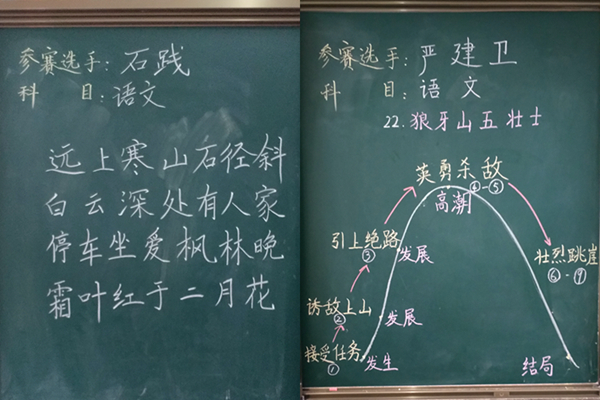 参赛选手：石践
科 目：语文
远上寒山石径斜
白云深处有人家
停车坐爱枫林晚
霜叶红于二月花
参赛选手：严建卫
科 目：语文
22.狼牙山五壮士
英勇杀敌
④-⑤
高潮
引上绝路
③
发展
壮烈跳崖
⑥-⑨
诱敌上山
②
发展
接受任务
①
发生
结局